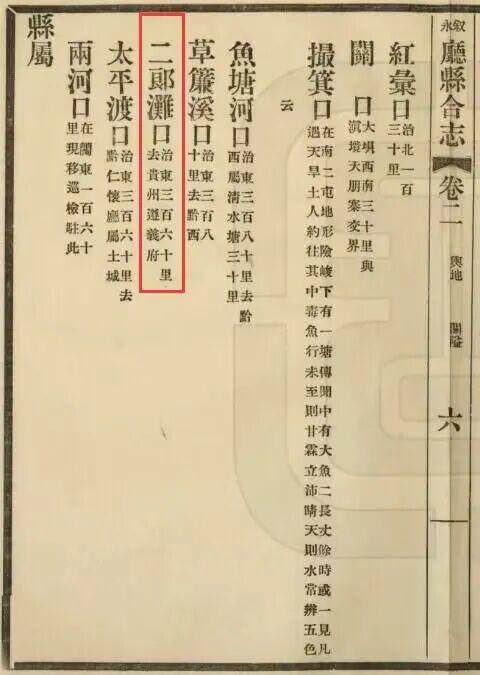 叙永廳縣合志 卷二 輿地 關隘 六
紅彙口 治北一百
三十里
關口 大垻西南三十里與
滇境天朋寨交界
撮箕口 在南二屯地形險峻下有一塘傳聞中有大魚二長丈餘時或一見凡
遇天旱土人約往其中毒魚行未至則甘霖立沛晴天則水常辨五色
云
魚塘河口 治東三百八十里去黔
西屬清水塘三十里
草簾溪口 治東三百八
十里去黔西
二郎灘口 治東三百六十里
去貴州遵義府
太平渡口 治東三百六十里去
黔仁懷廳屬土城
兩河口 在關東一百六十
里現移巡檢駐此
縣屬